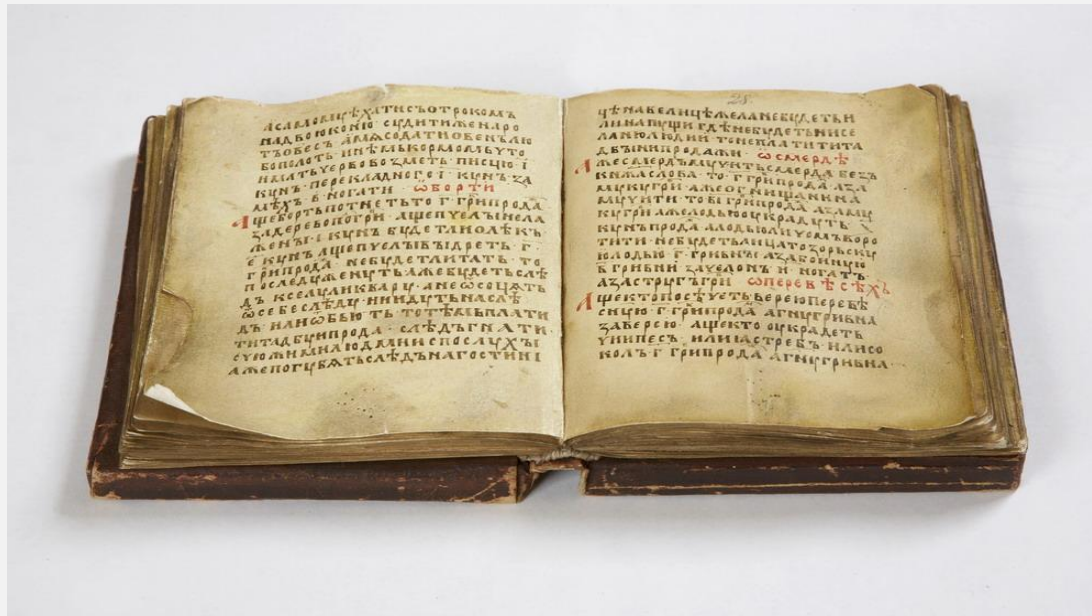 а самомѹ ѣхати съ отрокомъ
на двою коню · сѹдитиже на ро
тъ овесъ а мѧсо дати овень лю
бо полоть · инѣмь кормомь бѹто
имать черево возметь · писцю · і
кѹнъ · перекладного · і · кѹнъ · за
мѣхъ · в҃ · ногати · ѿ борти
Аще борть потнеть то · г҃ · гри прода
за дерево пол гри · аще пчелы
жены · і · кѹнъ · бѹдет ли олѣкъ
е҃ · кѹнъ · аще пчелы выдреть · г҃ ·
гри прода · не бѹдет ли тать · то
по следѹ женѹть аже бѹдеть слѣ
дъ к селѹ ли к варѹ · а не ѿсочѧть
ѿ себе слѣдѹ · ни идѹть на слѣ
дъ · или ѿбьють · то тѣмь плати
ти татбѹ и прода · слѣдъ гнати
с чюжими людми и с послѹхы
аже погѹбѧть слѣдъ на гостині
28.
цѣ на велицѣ же ла не бѹдеть и
ли на пѹщи гдѣ не бѹдеть ни се
ла ни людии то не платити та
двы ни продажи · ѿ смердѣ
Аже смердъ мѹчить смерда безъ
кнѧжа слова · то · г҃ · гри прода · а за
мѹкѹ гри · аже огнищанина
мѹчити · то ві гри прода · а за мѹ
кѹ гри аже лодью ѹкрадѹть
кѹнъ прода · а лодью лицомь воро
тити · не бѹдеть лица то зорьскѹ
ю лодью · г҃ · гривны · а за бойнѹю
в҃ · гривни за челонъ · и · ногатъ ·
а за стрѹгъ гри · ѿ перевѣсѣхъ
Аще кто посѣчеть верею перевѣ
снѹю · г҃ · гри прода · а гнѹ гривна
за верею · аще кто ѹкрадеть
чии песъ · или ястребъ · или со
колъ · г҃ · гри прода · а гнѹ гривна